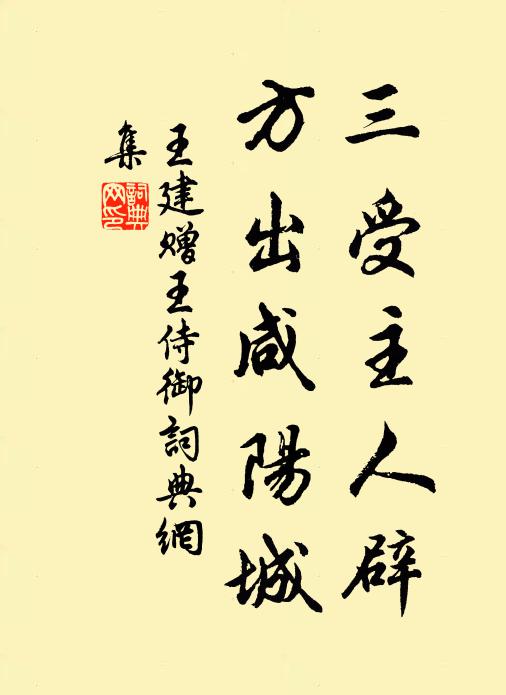 三受主人辟
方出咸陽城
王建贈王侍御詞典網
集
詞典
网印